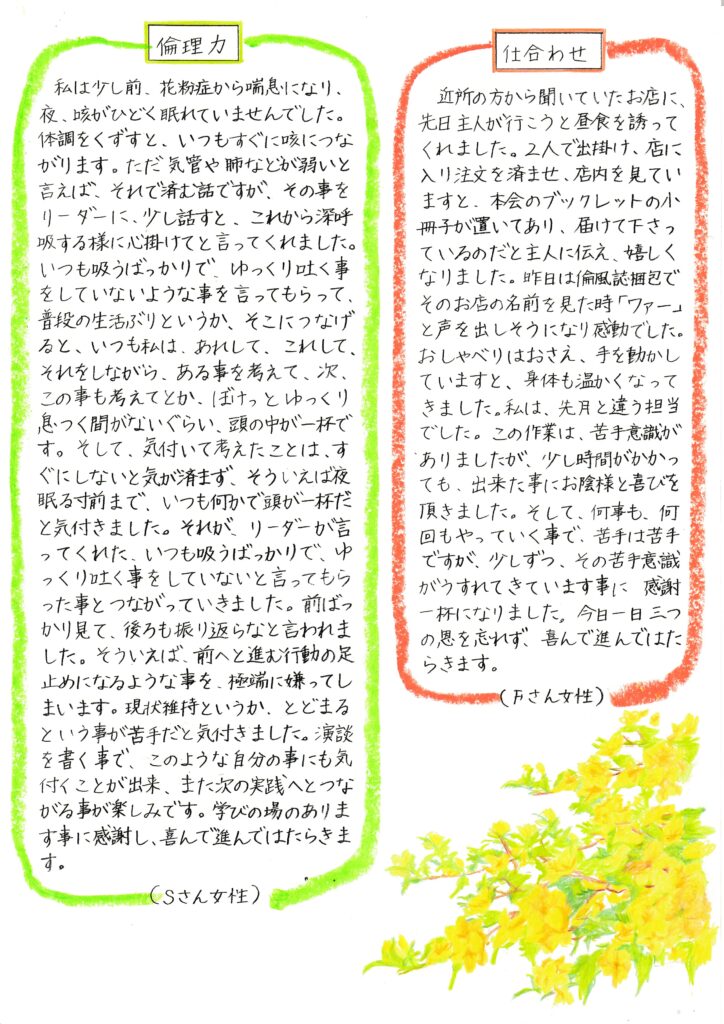 倫理力
私は少し前、花粉症から喘息になり、
夜、咳がひどく眠れていませんでした。
体調をくずすと、いつもすぐに咳につな
がります。ただ気管や肺などが弱いと
言えば、それで済む話ですが、その事を
リーダーに、少し話すと、これから深呼
吸する様に心掛けてと言ってくれました。
いつも吸うばっかりで、ゆっくり吐く事
をしていないような事を言ってもらって、
普段の生活ぶりというか、そこにつなげ
ると、いつも私は、あれして、これして、
それをしながら、ある事を考えて、次、
この事も考えてとか、ぼけっとゆっくり
息つく間がないぐらい、頭の中が一杯で
す。そして、気付いて考えたことは、す
ぐにしないと気が済まず、そういえば夜
眠る寸前まで、いつも何かで頭が一杯だ
と気付きました。それが、リーダーが言
ってくれた、いつも吸うばっかりで、ゆ
っくり吐く事をしていないと言ってもら
った事とつながっていきました。前ばっ
かり見て、後ろも振り返らなと言われま
した。そういえば、前へと進む行動の足
止めになるような事を、極端に嫌ってし
まいます。現状維持というか、とどまる
という事が苦手だと気付きました。演談
を書く事で、このような自分の事にも気
付くことが出来、また次の実践へとつな
がる事が楽しみです。学びの場のありま
す事に感謝し、喜んで進んではたらきま
す。
(Sさん女性)
仕合わせ
近所の方から聞いていたお店に、
先日主人が行こうと昼食を誘って
くれました。2人で出掛け、店に
入り注文を済ませ、店内を見てい
ますと、本会のブックレットの小
冊子が置いてあり、届けて下さっ
ているのだと主人に伝え、嬉しく
なりました。昨日は倫風誌梱包で
そのお店の名前を見た時「ファー」
と声を出しそうになり感動でした。
おしゃべりはおさえ、手を動かし
ていますと、身体も温かくなって
きました。私は、先月と違う担当
でした。この作業は、苦手意識が
ありましたが、少し時間がかかっ
ても、出来た事にお陰様と喜びを
頂きました。そして、何事も、何
回もやっていく事で、苦手は苦手
ですが、少しずつ、その苦手意識
がうすれてきています事に 感謝
一杯になりました。今日一日三つ
の恩を忘れず、喜んで進んではた
らきます。
(Fさん女性)